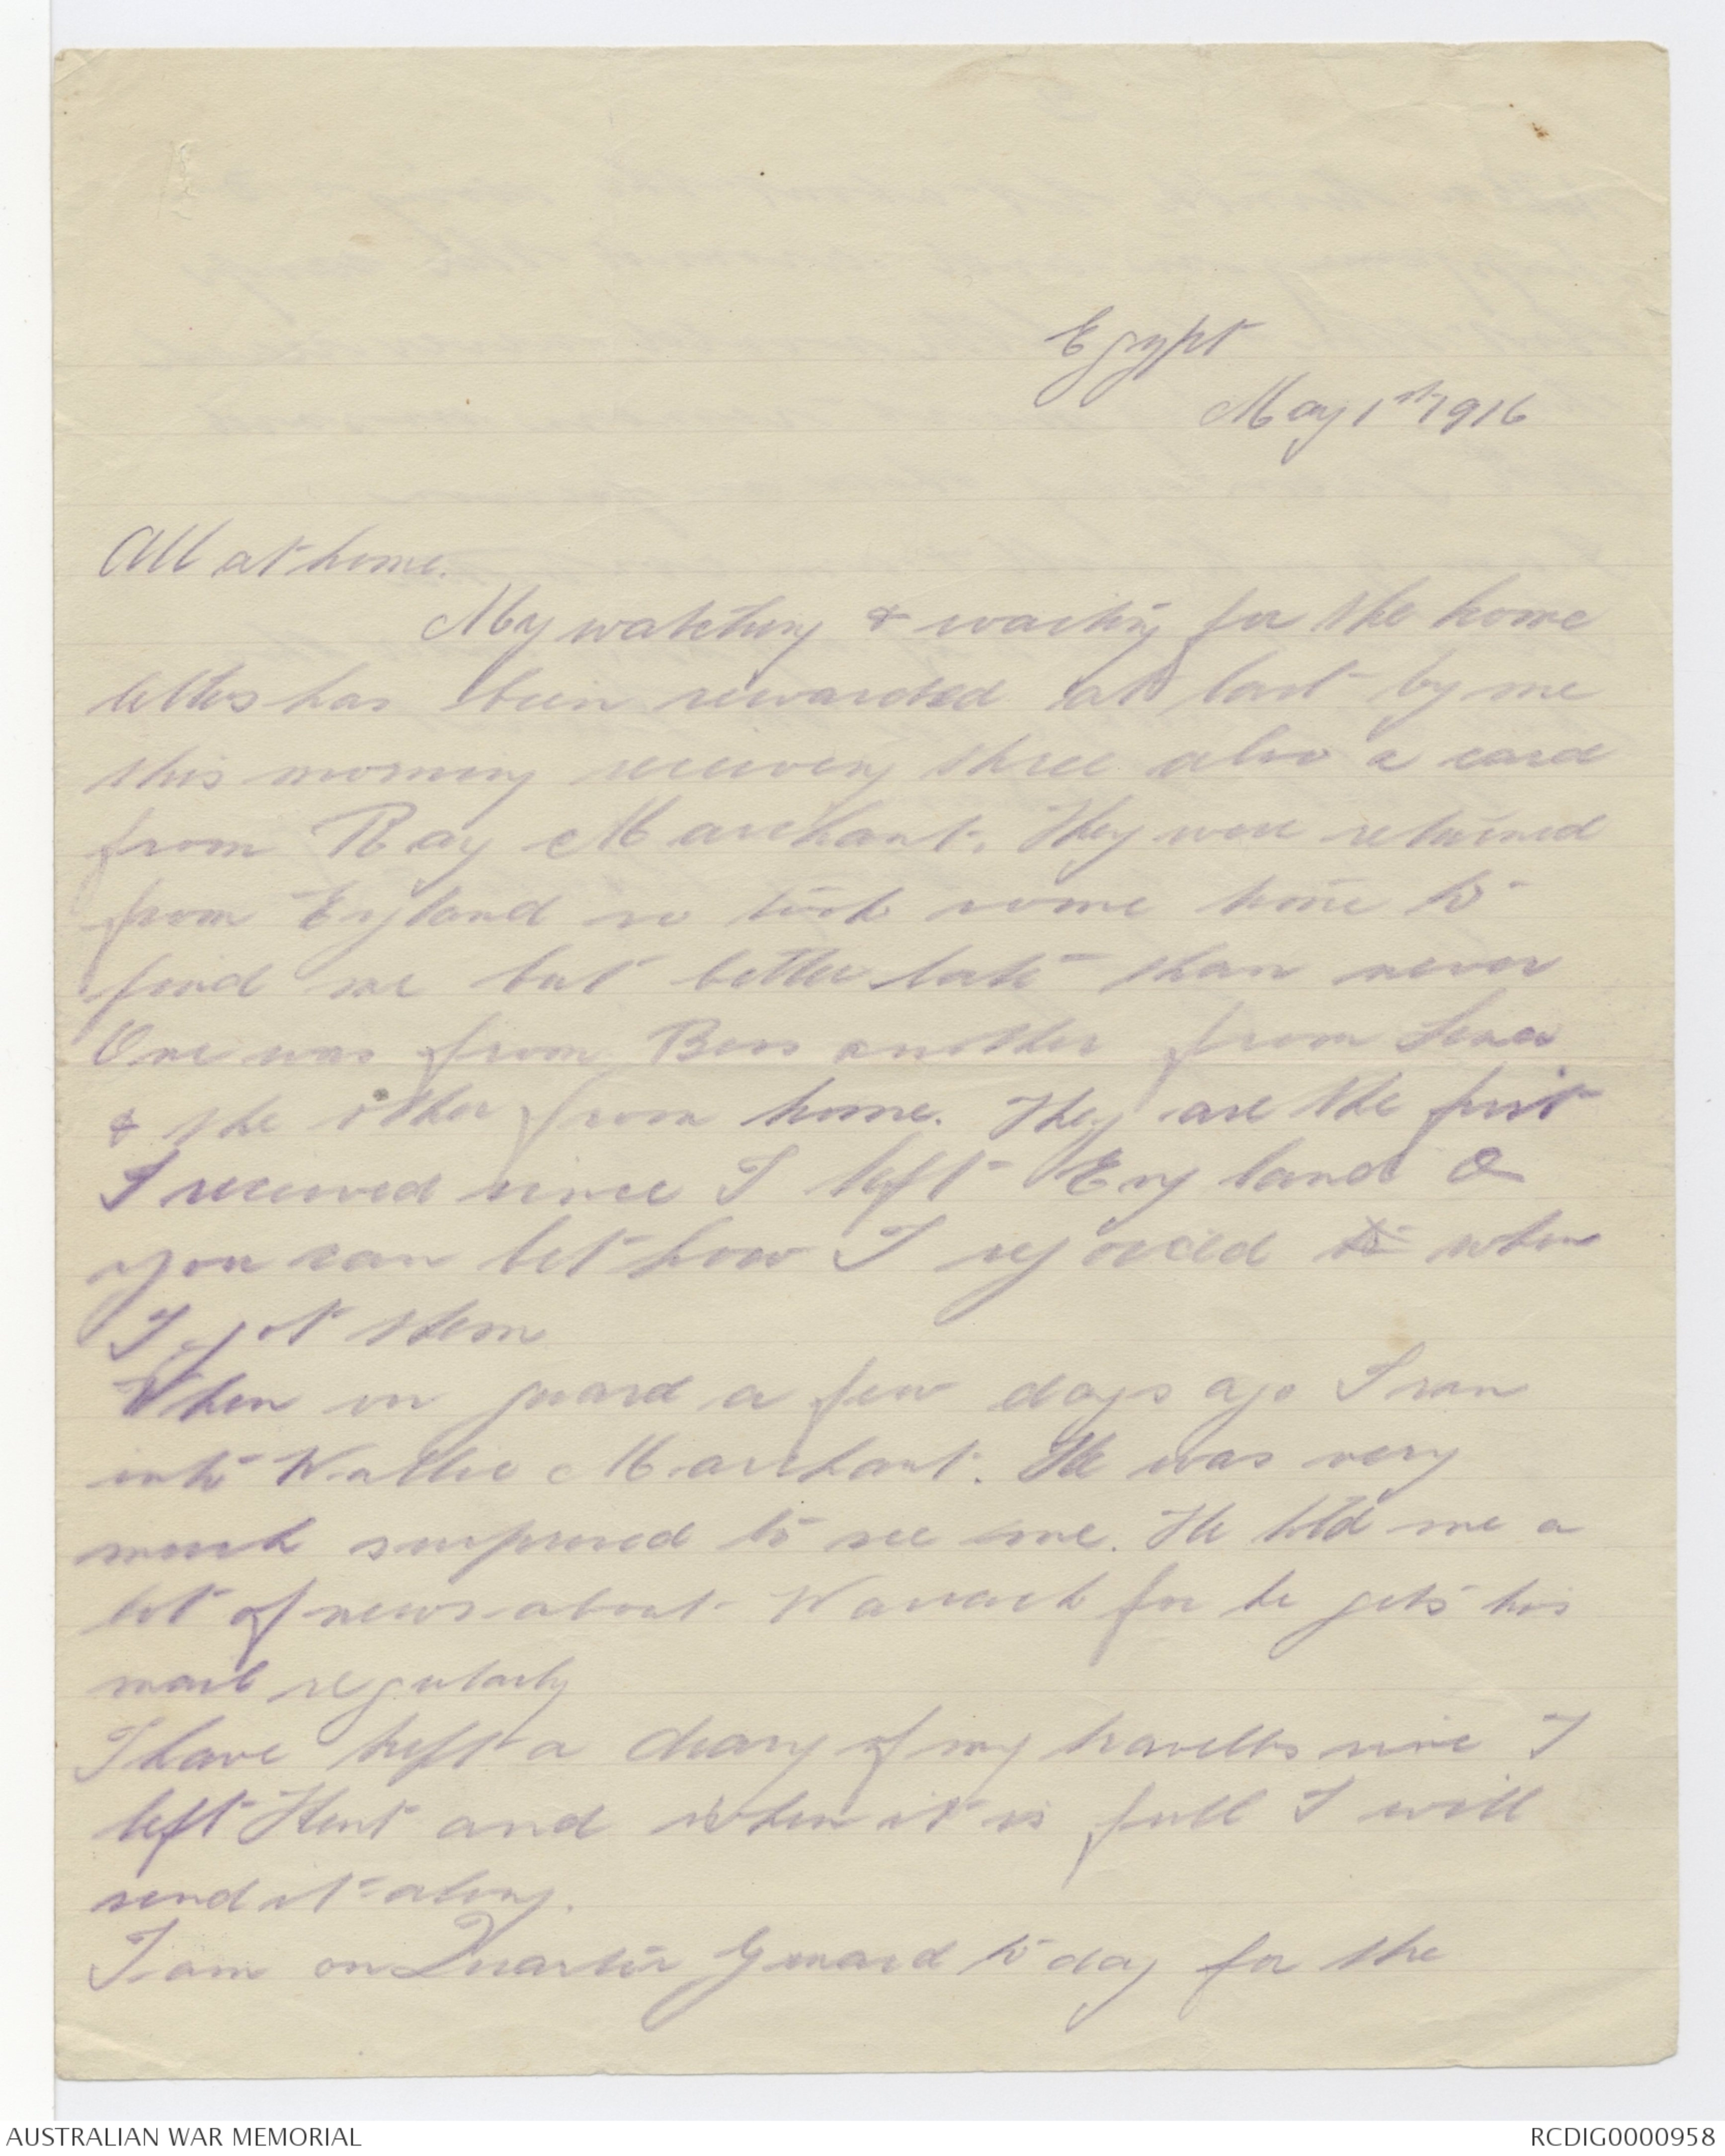 Egypt
May 1st 1916
All at home.
My watching & waiting for the home
letters has been rewarded at last by me
this morning receiving three also a card
from Ray Marchant. They were returned
from England so took some time to
find me but better late than never
One was from Bess another from
& the other from home. They are the first
I received since I left England &
you can bet how I rejoiced to when
I got them
When on guard a few days ago I ran
into Wattie Marchant. He was very
much surprised to see me. He told me a
lot of news about Warrack for he gets his
mail regularly
I have kept a diary of my travells since I
left Hent and when it is full I will
send it along.
I am on Quarter Guard to day for the
AUSTRALIAN WAR MEMORIAL
RCDIG0000958